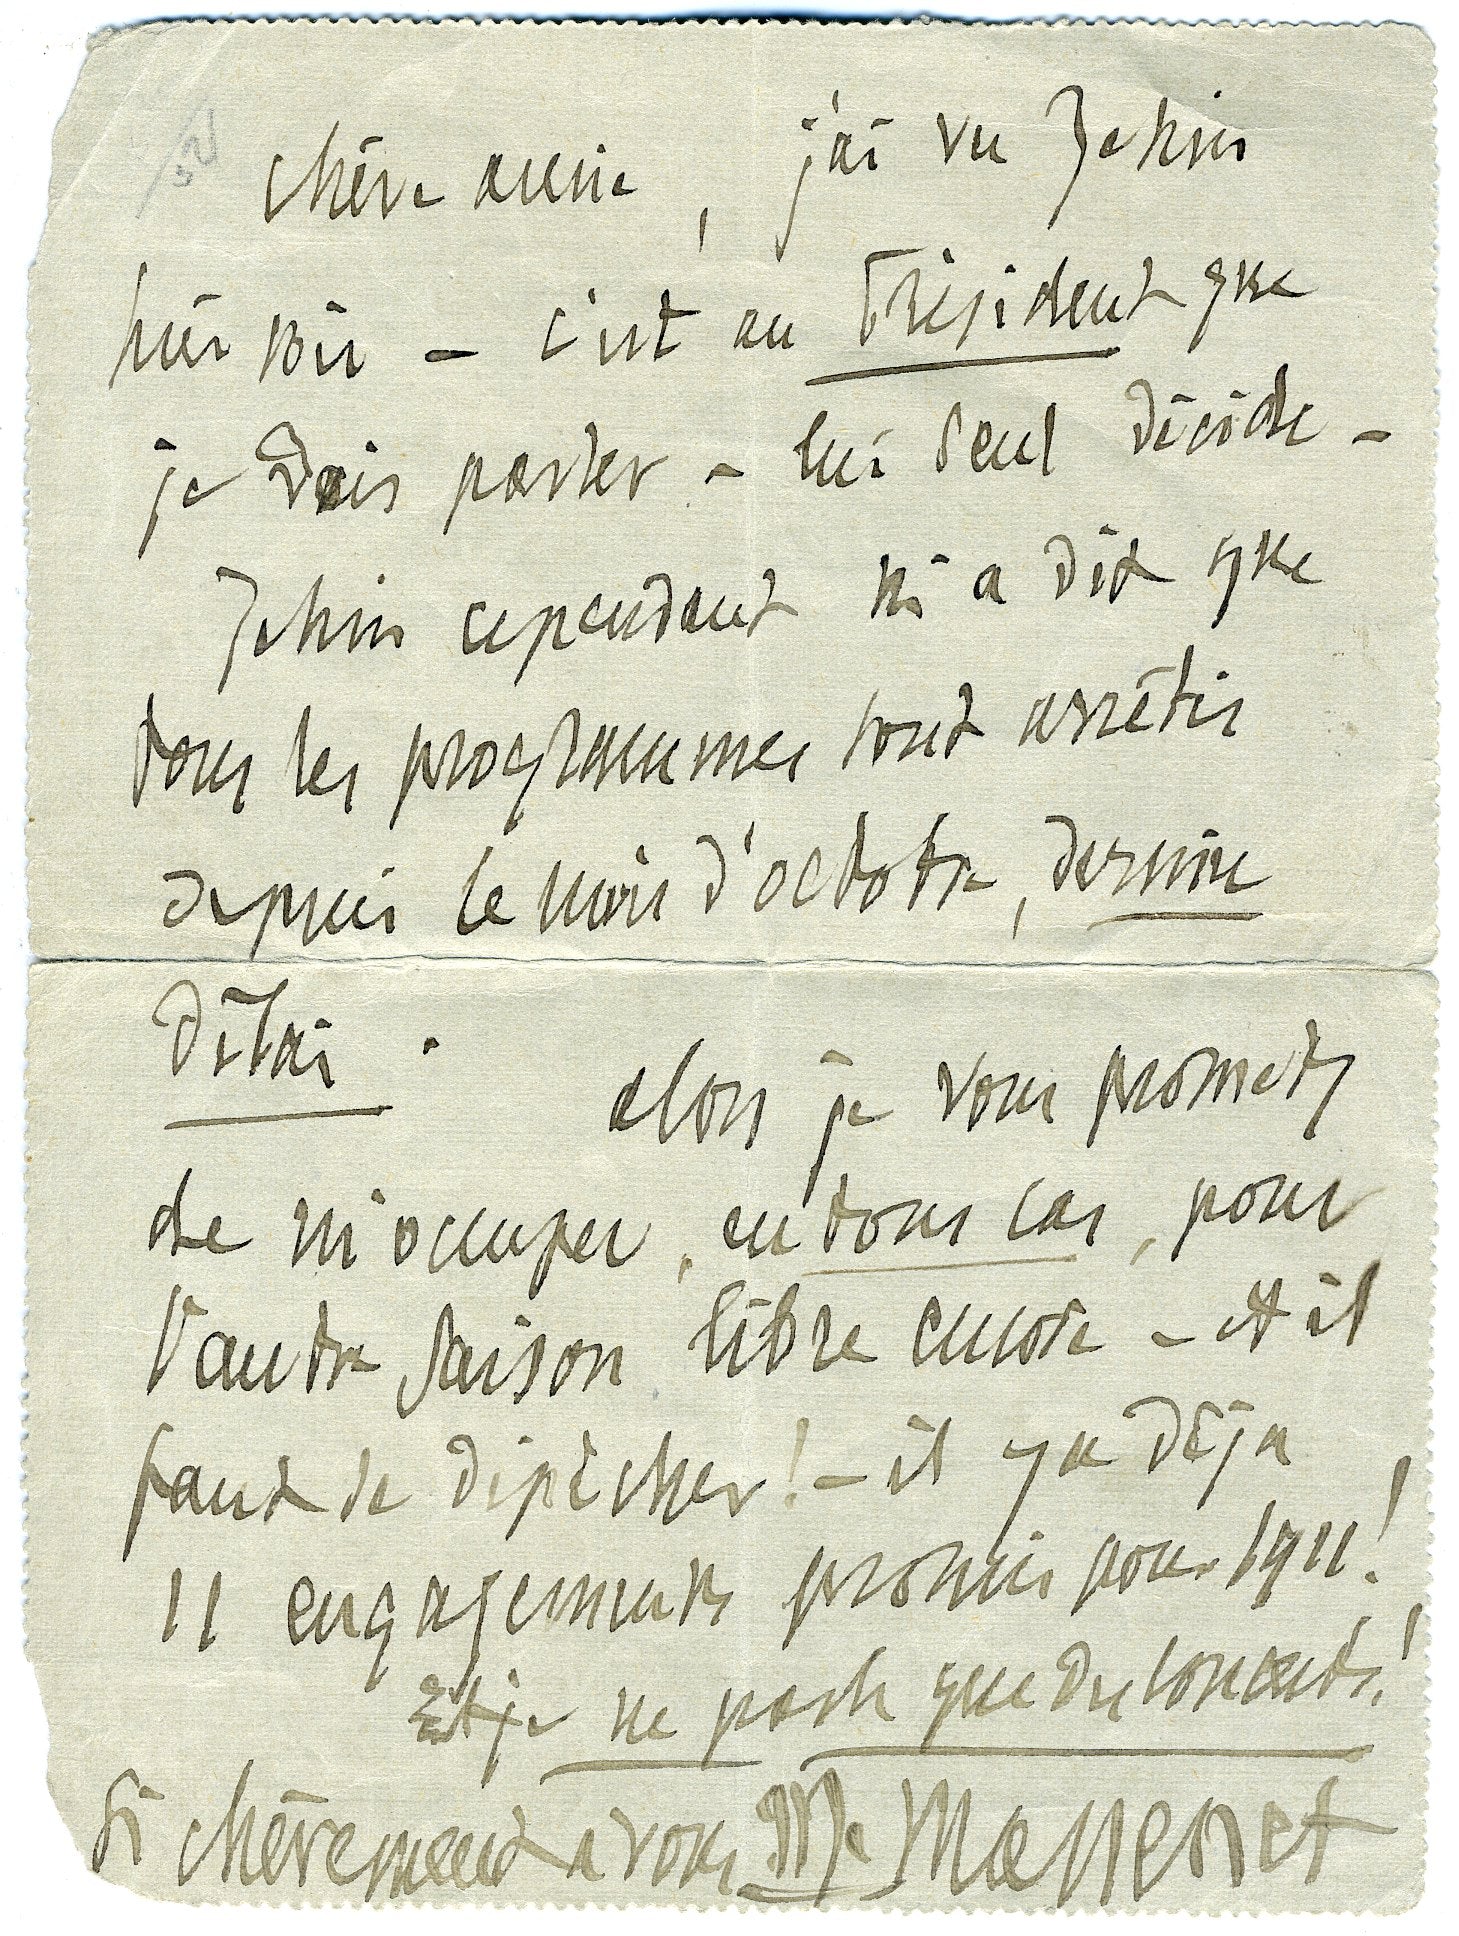 Chère amie, j'ai vu Jehin
hier soir – c'est au Président que
je dois parler – lui seul décide –
Jehin cependant m'a dit que
tous les programmes sont arrêtés
depuis le mois d'octobre, dernier
délai. alors je vous promets
de m'occuper, en tous cas, pour
l'autre saison libre encore – et il
faut se dépêcher! – il y a déjà
11 engagements promis pour 1911!
Et je ne parle que du concert!
Si chèrement à vous Massenet